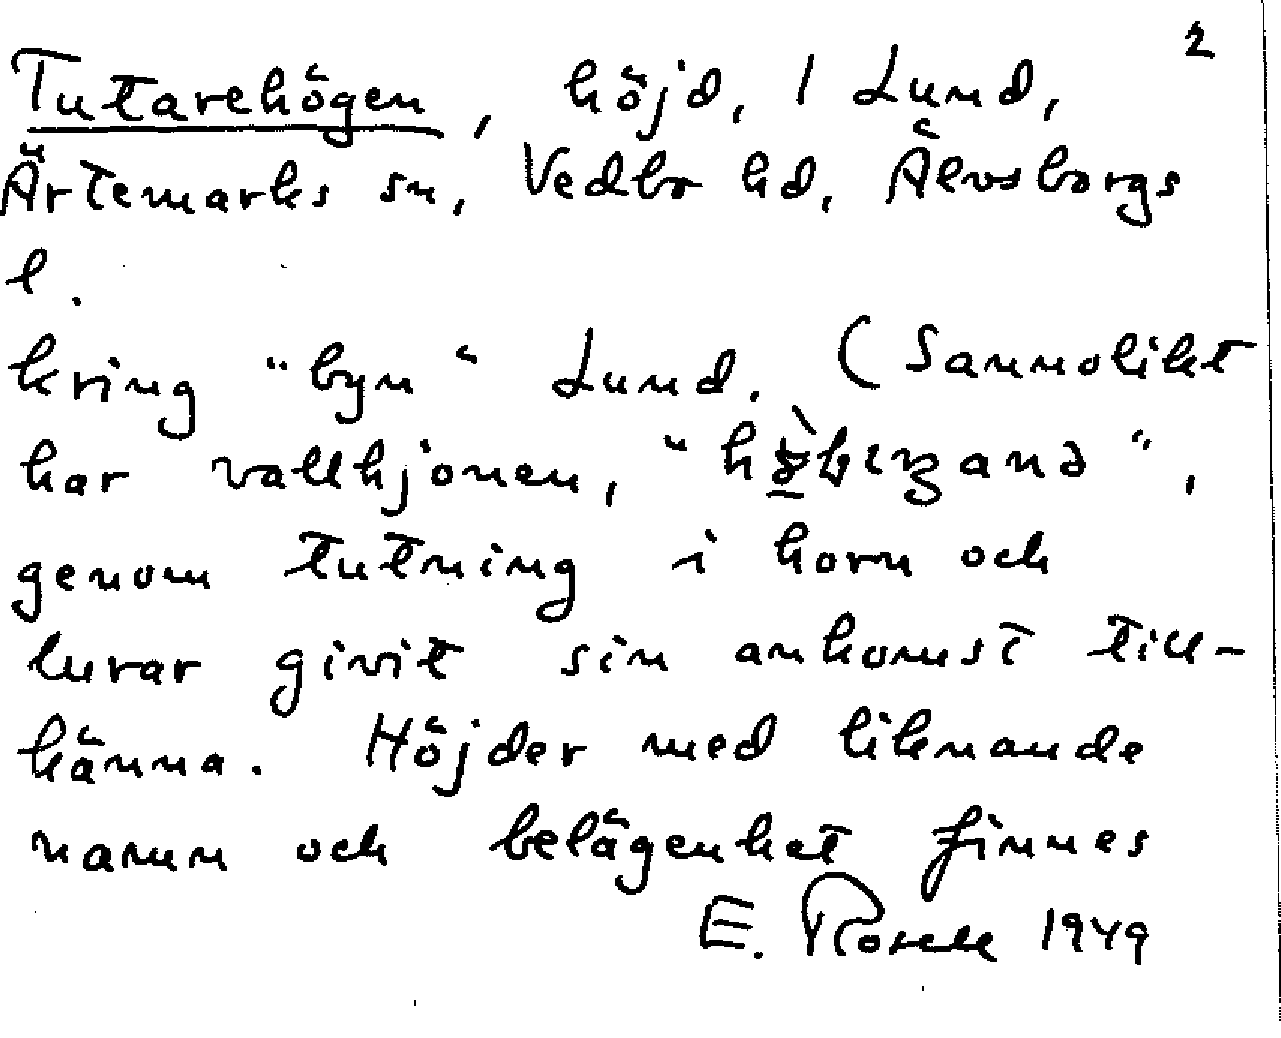 2
Tutarehögen, höjd, 1 Lund,
Ärtemarks sn, Vedbo hd, Älvsborgs
l.
kring "byn" Lund. (Sannolikt
har vallhjonen,
genom tutning i horn och
lurar givit sin ankomst till-
känna. Höjder med liknande
namn och belägenhet finnes
E. Rosell 1949